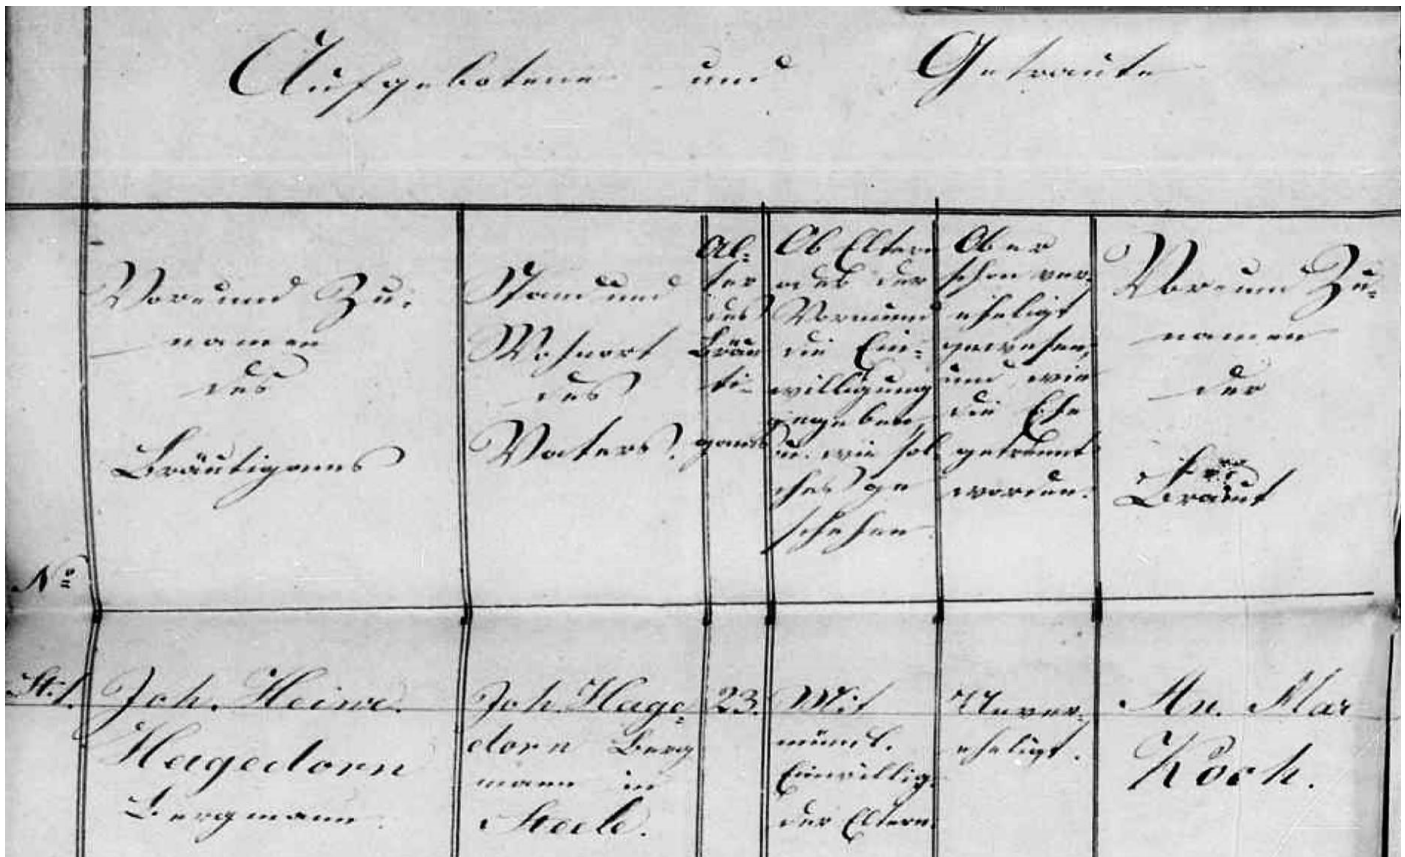 Aufgebotene und Getraute
Vor- und Zu-
namen
des
Bräutigams
Stand und
Wohnort
des
Vaters.
Al-
ter
des
Bräu
ti-
gams
Ob Eltern
oder der
Vormund
die Ein-
willigung
gegeben,
u. wie sol
ches ge
schehen.
Ob er
schon ver-
eheligt
gewesen,
und wie
die Ehe
getrennt
worden.
Vor- und Zu-
namen
der
Braut
No
St. 1.
Joh. Heinr.
Hagedorn
Bergmann.
Joh. Hage-
dorn Berg
mann in
Steele.
23.
Mit
mündl.
Einwillig.
der Eltern.
Unver-
eheligt.
An. Mar
Koch.